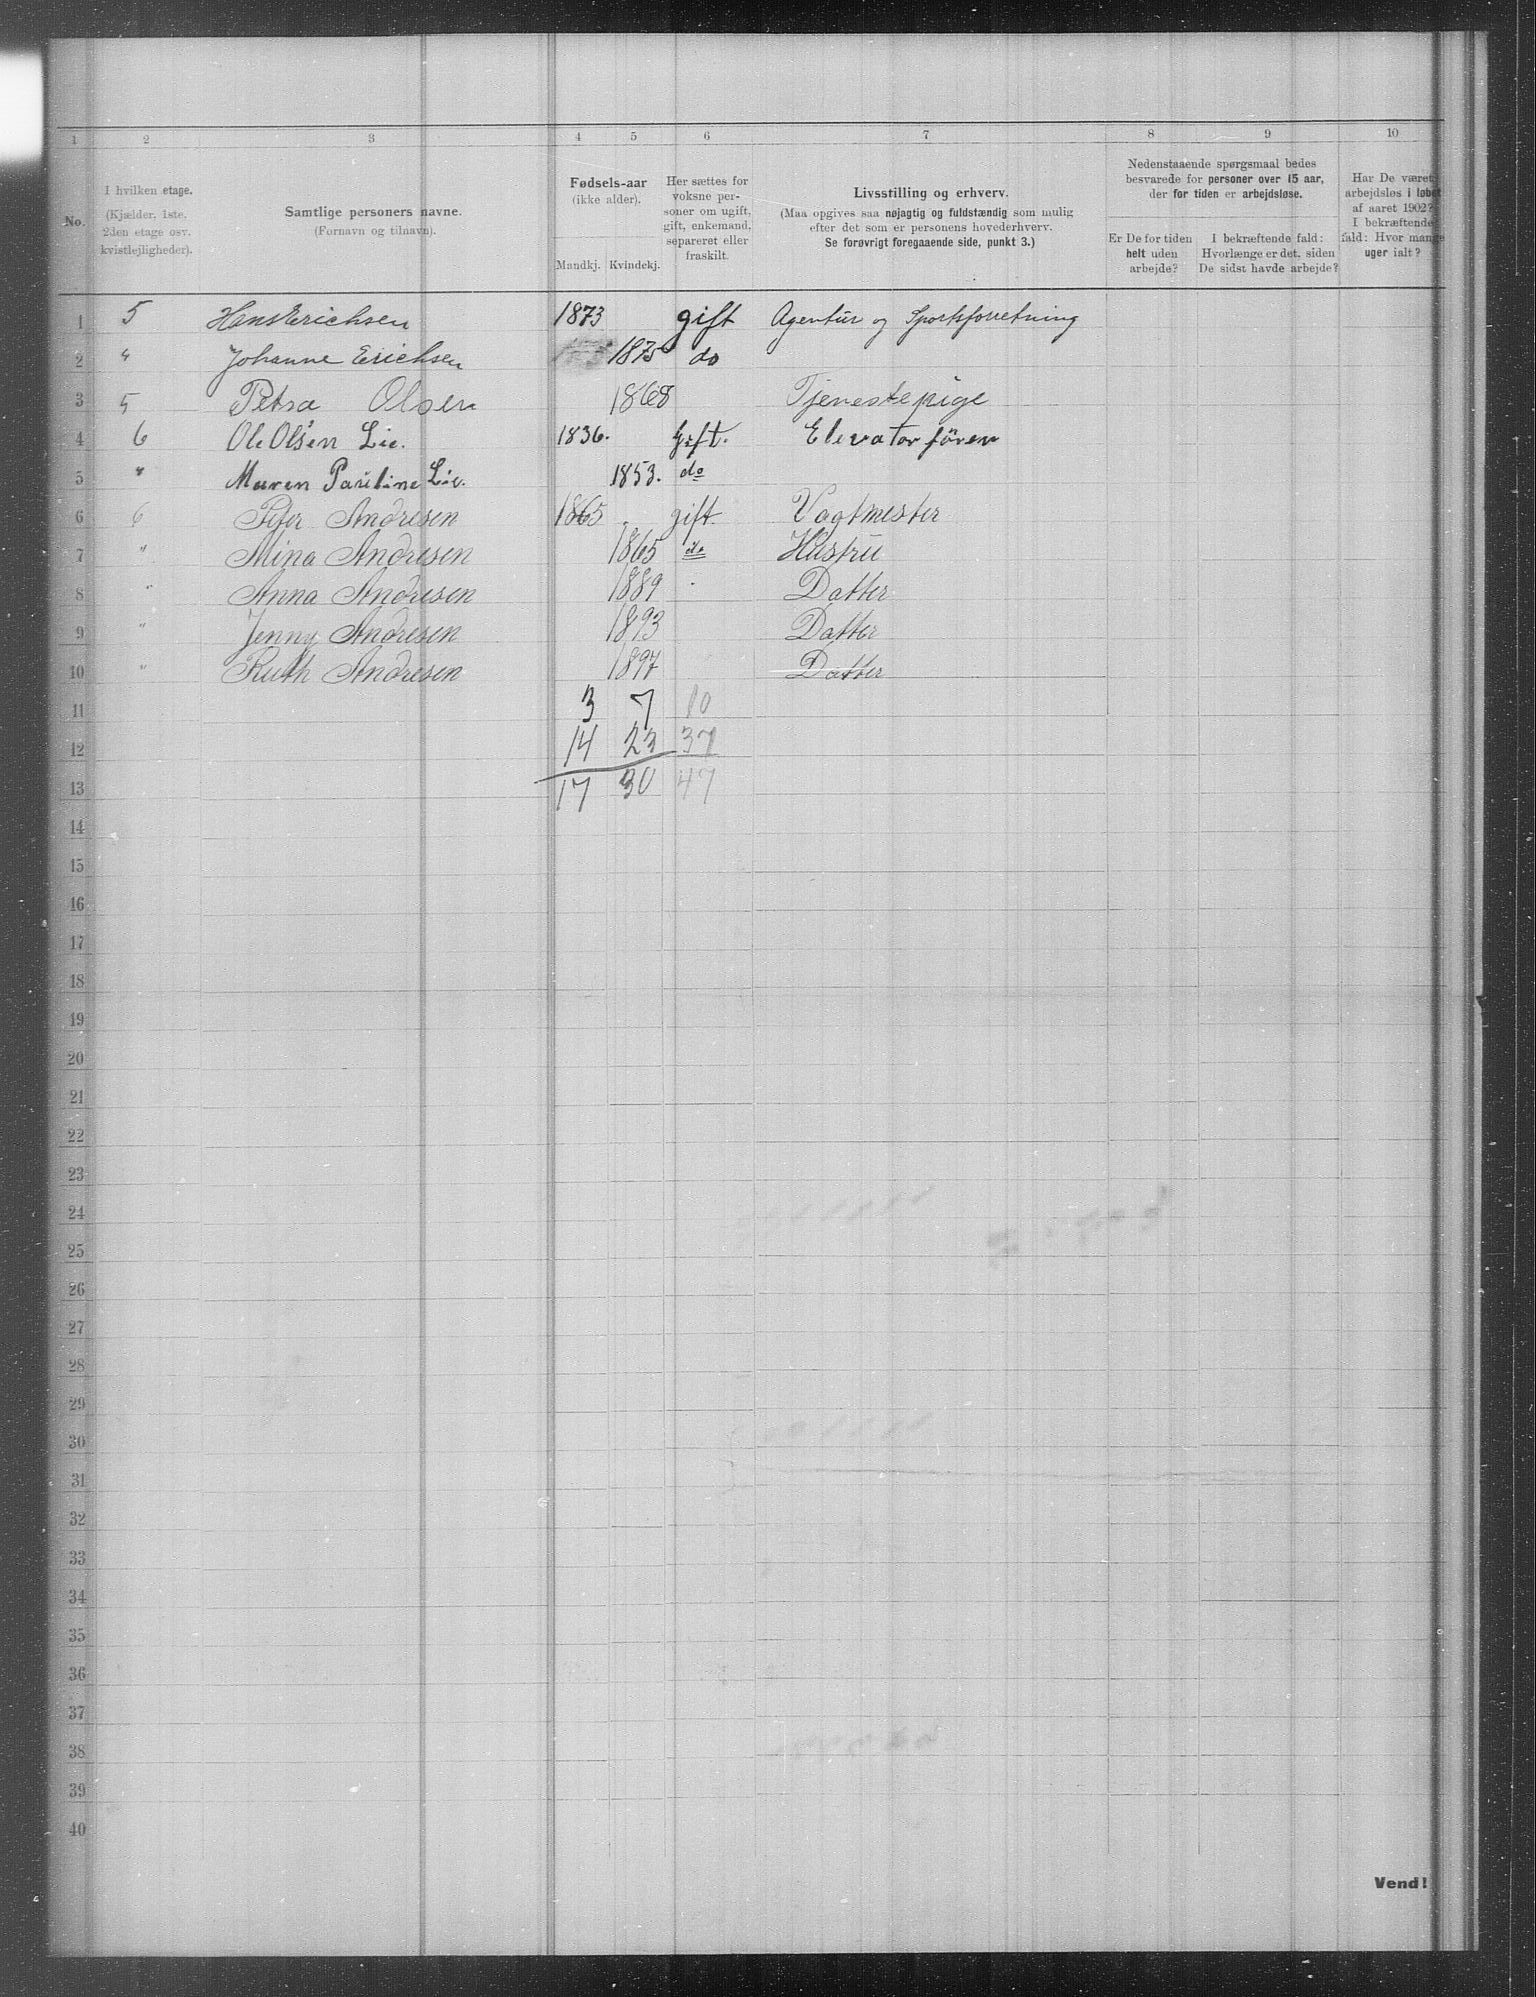 1 2 3 4 5 6 7 8 9 10
No.
I hvilken etage.
(Kjælder, 1ste, 2den etage osv. kvistlejligheder).
Samtlige personers navne.
(Fornavn og tilnavn).
Fødsels-aar
(ikke alder).
Mandkj. Kvindekj.
Her sættes for voksne personer om ugift, gift, enkemand, separeret eller fraskilt.
Livsstilling og erhverv.
(Maa opgives saa nøjagtig og fuldstændig som mulig
efter det som er personens hovederhverv.
Se forøvrigt foregaaende side, punkt 3.)
Nedenstaaende spørgsmaal bedes
besvarede for personer over 15 aar,
der for tiden er arbejdsløse.
Er De for tiden
helt uden
arbejde?
I bekræftende fald:
Hvorlænge er det, siden
De sidst havde arbejde?
Har De været
arbejdsløs i løbet
af aaret 1902?
I bekræftende
fald: Hvor mange
uger ialt?
1 5 Hans Erichsen 1873 gift Agentur og Sportsforretning
2 " Johanne Erichsen 1875 do
3 5 Petra Olsen 1868 Tjenestepige
4 6 Ole Olsen Lie. 1836. Gift. Elevator fører
5 " Maren Pauline Lie. 1853. do
6 6 Peter Andresen 1865 gift. Vagtmester
7 " Mina Andresen 1865 do Hustru
8 " Anna Andresen 1889 Datter
9 " Jenny Andresen 1893 Datter
10 " Ruth Andresen 1897 Datter
11 3 7 10
12 14 23 37
13 17 30 47
14
15
16
17
18
19
20
21
22
23
24
25
26
27
28
29
30
31
32
33
34
35
36
37
38
39
40
Vend!